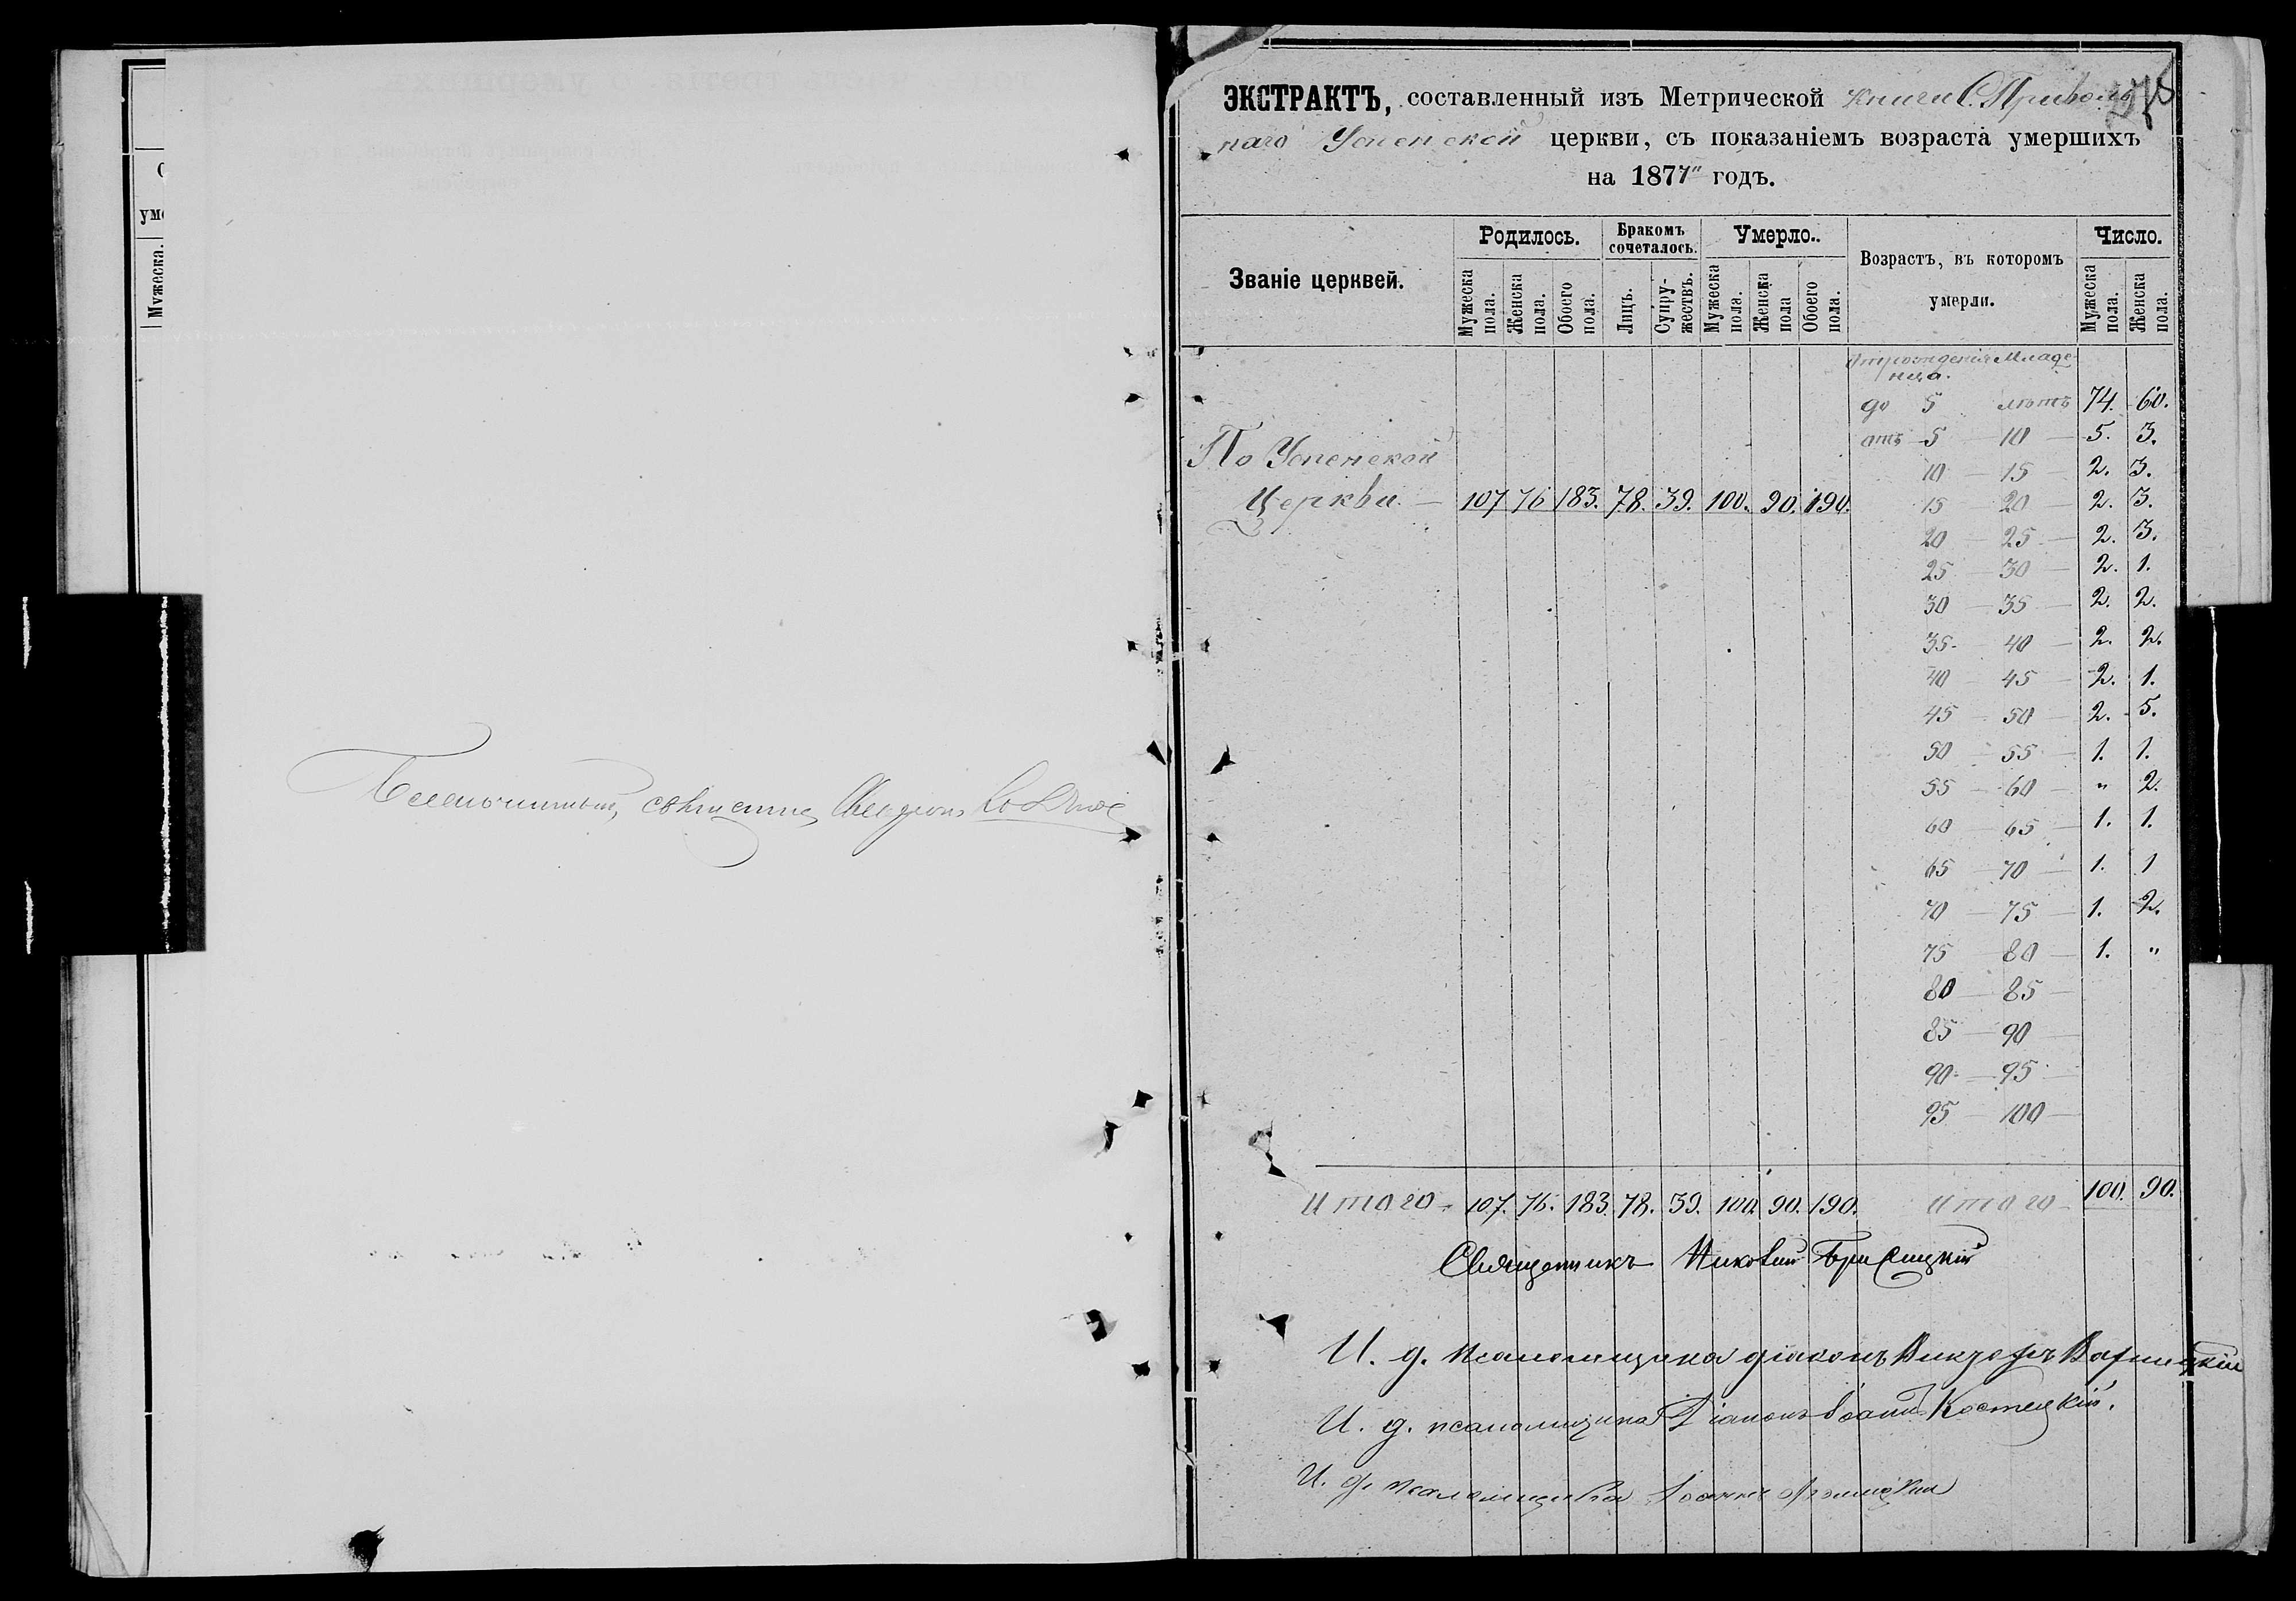 уме
Мужеска.
ЭКСТРАКТЪ, составленный изъ Метрической книги С. Приволь
наго Успенской церкви, съ показаніемъ возраста умершихъ
на 1877 годъ.
Званіе церквей. Родилось. Бракомъ сочеталось. Умерло. Возрастъ, въ которомъ умерли. Число.
Мужеска пола. Женска пола. Обоего пола. Лицъ. Супружествъ. Мужеска пола. Женска пола Обоего пола. Мужеска пола. Женска пола.
От рожденія Младе-
нца.
до 5 лѣтъ 74. 60.
отъ 5 — 10 — 5. 3.
10 — 15 — 2. 3.
По Успенской
Церкви — 107 76 183. 78. 39. 100. 90. 190. 15 — 20 — 2. 3.
20 — 25 — 2. 3.
25 — 30 — 2. 1.
30 — 35 — 2. 2.
35 — 40 — 2. 2.
40 — 45 — 2. 1.
45 — 50 — 2. 5.
50 — 55 — 1. 1.
55 — 60 — " 2.
60 — 65 — 1. 1.
65 — 70 — 1. 1
70 — 75 — 1. 2.
75 — 80 — 1. "
80 — 85 —
85 — 90
90 — 95 —
95 — 100 —
Итого — 107. 76. 183. 78. 39. 100. 90. 190. Итого — 100. 90.
Священникъ
И. д. псаломщика діаконъ Викторъ
И. д. псаломщика Діаконъ Іоаннъ Костецкій.
И. д. псаломщика Іоаннъ